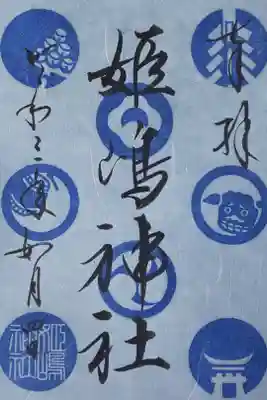 奉拝
姫嶋神社
令和三年 如月
姫嶋神社